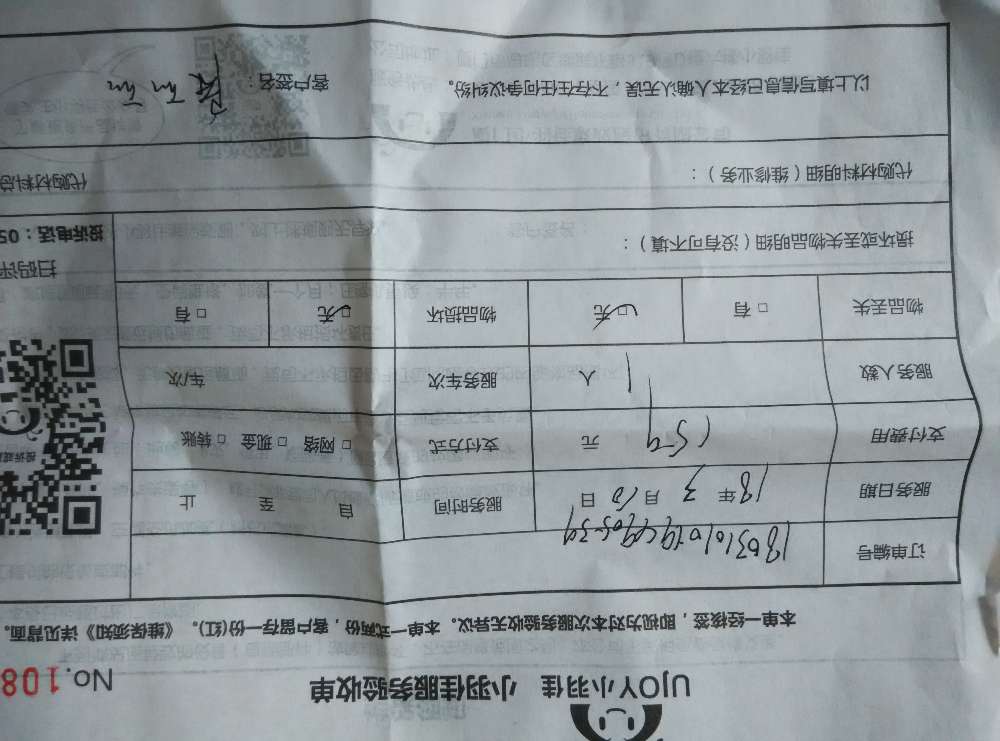 UJOY小羽佳 小羽佳服务验收单
No.108
本单一经核签，即视为对本次服务验收无异议。本单一式两份，客户留存一份(红)。《维保须知》详见背面。
订单编号
服务日期 18年3月10日 服务时间 自 至 止
支付费用 159 元 支付方式 □网络 □现金 □转账
服务人数 1 人 服务车次 车/次
物品丢失 □有 □无 物品损坏 □无 □有
损坏或丢失物品明细（没有可不填）：
扫码评
投诉电话：05
代购材料明细（维修业务）：
代购材料总
以上填写信息已经本人确认无误，不存在任何争议纠纷。 客户签名：